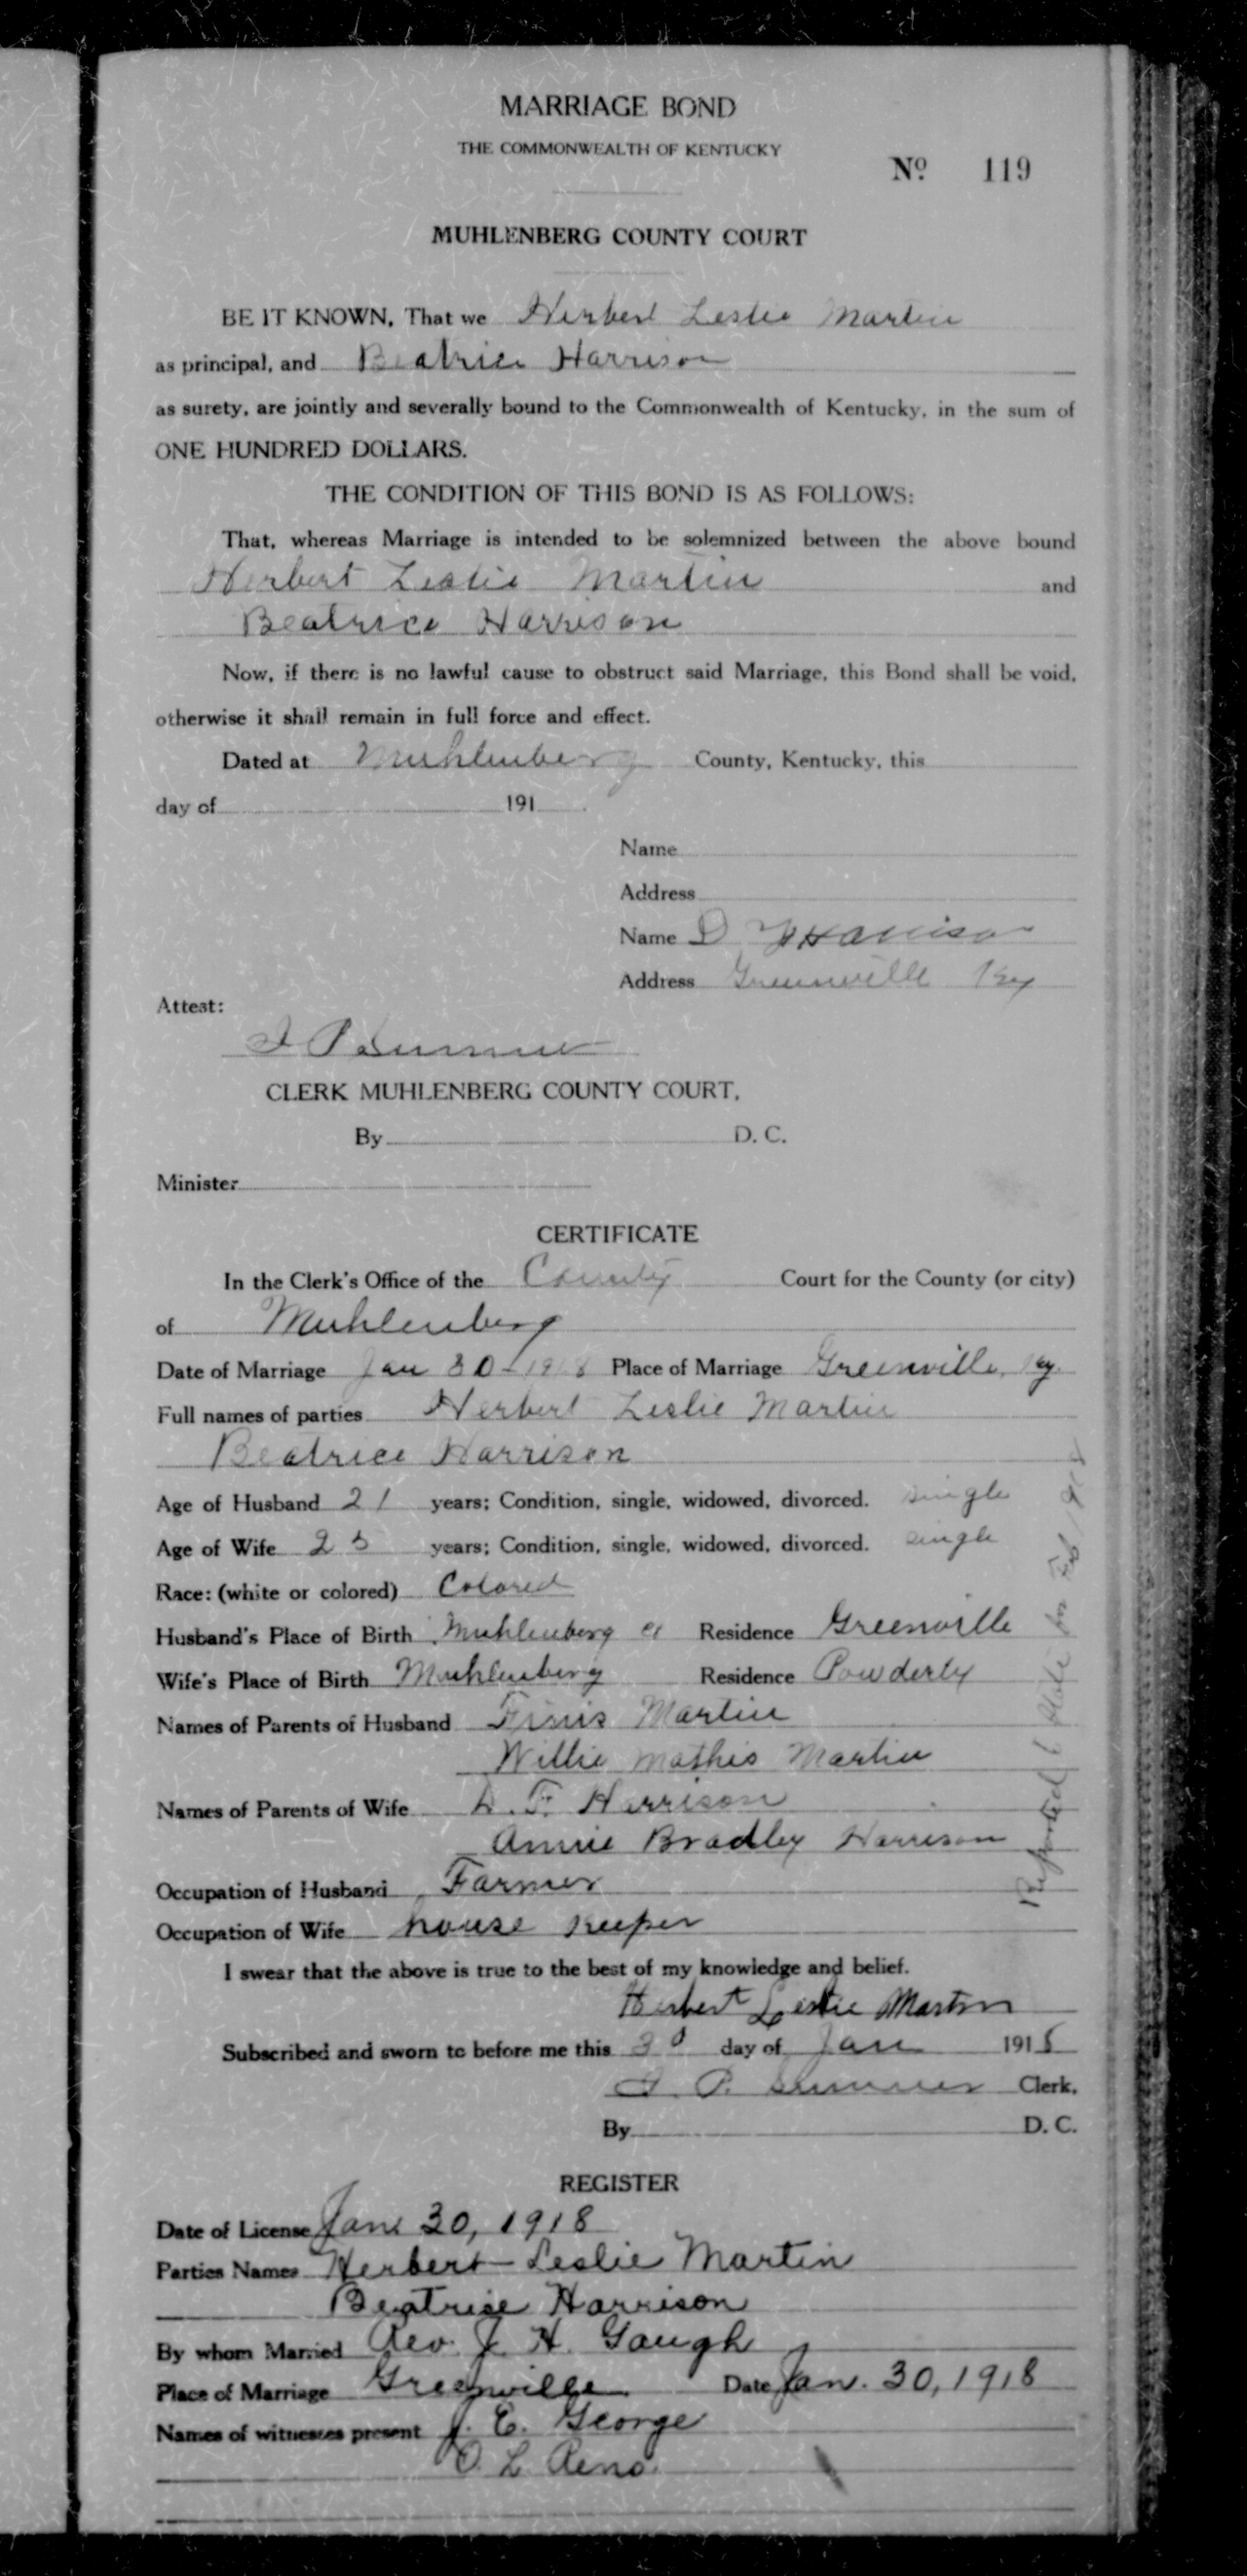 MARRIAGE BOND
THE COMMONWEALTH OF KENTUCKY
No. 119
MUHLENBERG COUNTY COURT
BE IT KNOWN, That we Herbert Leslie Martin
as principal, and Beatrice Harrison
as surety, are jointly and severally bound to the Commonwealth of Kentucky, in the sum of
ONE HUNDRED DOLLARS.
THE CONDITION OF THIS BOND IS AS FOLLOWS:
That, whereas Marriage is intended to be solemnized between the above bound
Herbert Leslie Martin and
Beatrice Harrison
Now, if there is no lawful cause to obstruct said Marriage, this Bond shall be void,
otherwise it shall remain in full force and effect.
Dated at Muhlenberg County, Kentucky, this
day of 191
Name
Address
Name D Harrison
Address Greenville Ky
Attest:
CLERK MUHLENBERG COUNTY COURT.
By D. C.
Minister
CERTIFICATE
In the Clerk's Office of the County Court for the County (or city)
of Muhlenberg
Date of Marriage Jan 30-1918 Place of Marriage Greenville, Ky.
Full names of parties Herbert Leslie Martin
Beatrice Harrison
Age of Husband 21 years; Condition, single, widowed, divorced. single
Age of Wife 25 years; Condition, single, widowed, divorced. single
Race: (white or colored) Colored
Husband's Place of Birth Muhlenberg Co Residence Greenville
Wife's Place of Birth Muhlenberg Residence Powderly
Names of Parents of Husband Finis Martin
Willie Mathis Martin
Names of Parents of Wife D. F. Harrison
Annie Bradley Harrison
Occupation of Husband Farmer
Occupation of Wife house keeper
I swear that the above is true to the best of my knowledge and belief.
Herbert Leslie Martin
Subscribed and sworn to before me this 30 day of Jan 1918
Clerk.
By D. C.
REGISTER
Date of License Jan. 30, 1918
Parties Names Herbert Leslie Martin
Beatrice Harrison
By whom Married Rev. J. H. Gaugh
Place of Marriage Greenville Date Jan. 30, 1918
Names of witnesses present J. E. George
O. L. Reno.
Reported to State in Feb 1918